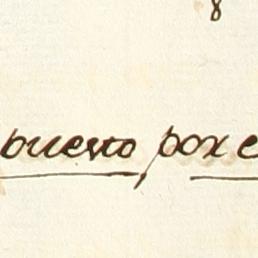 puesto por e